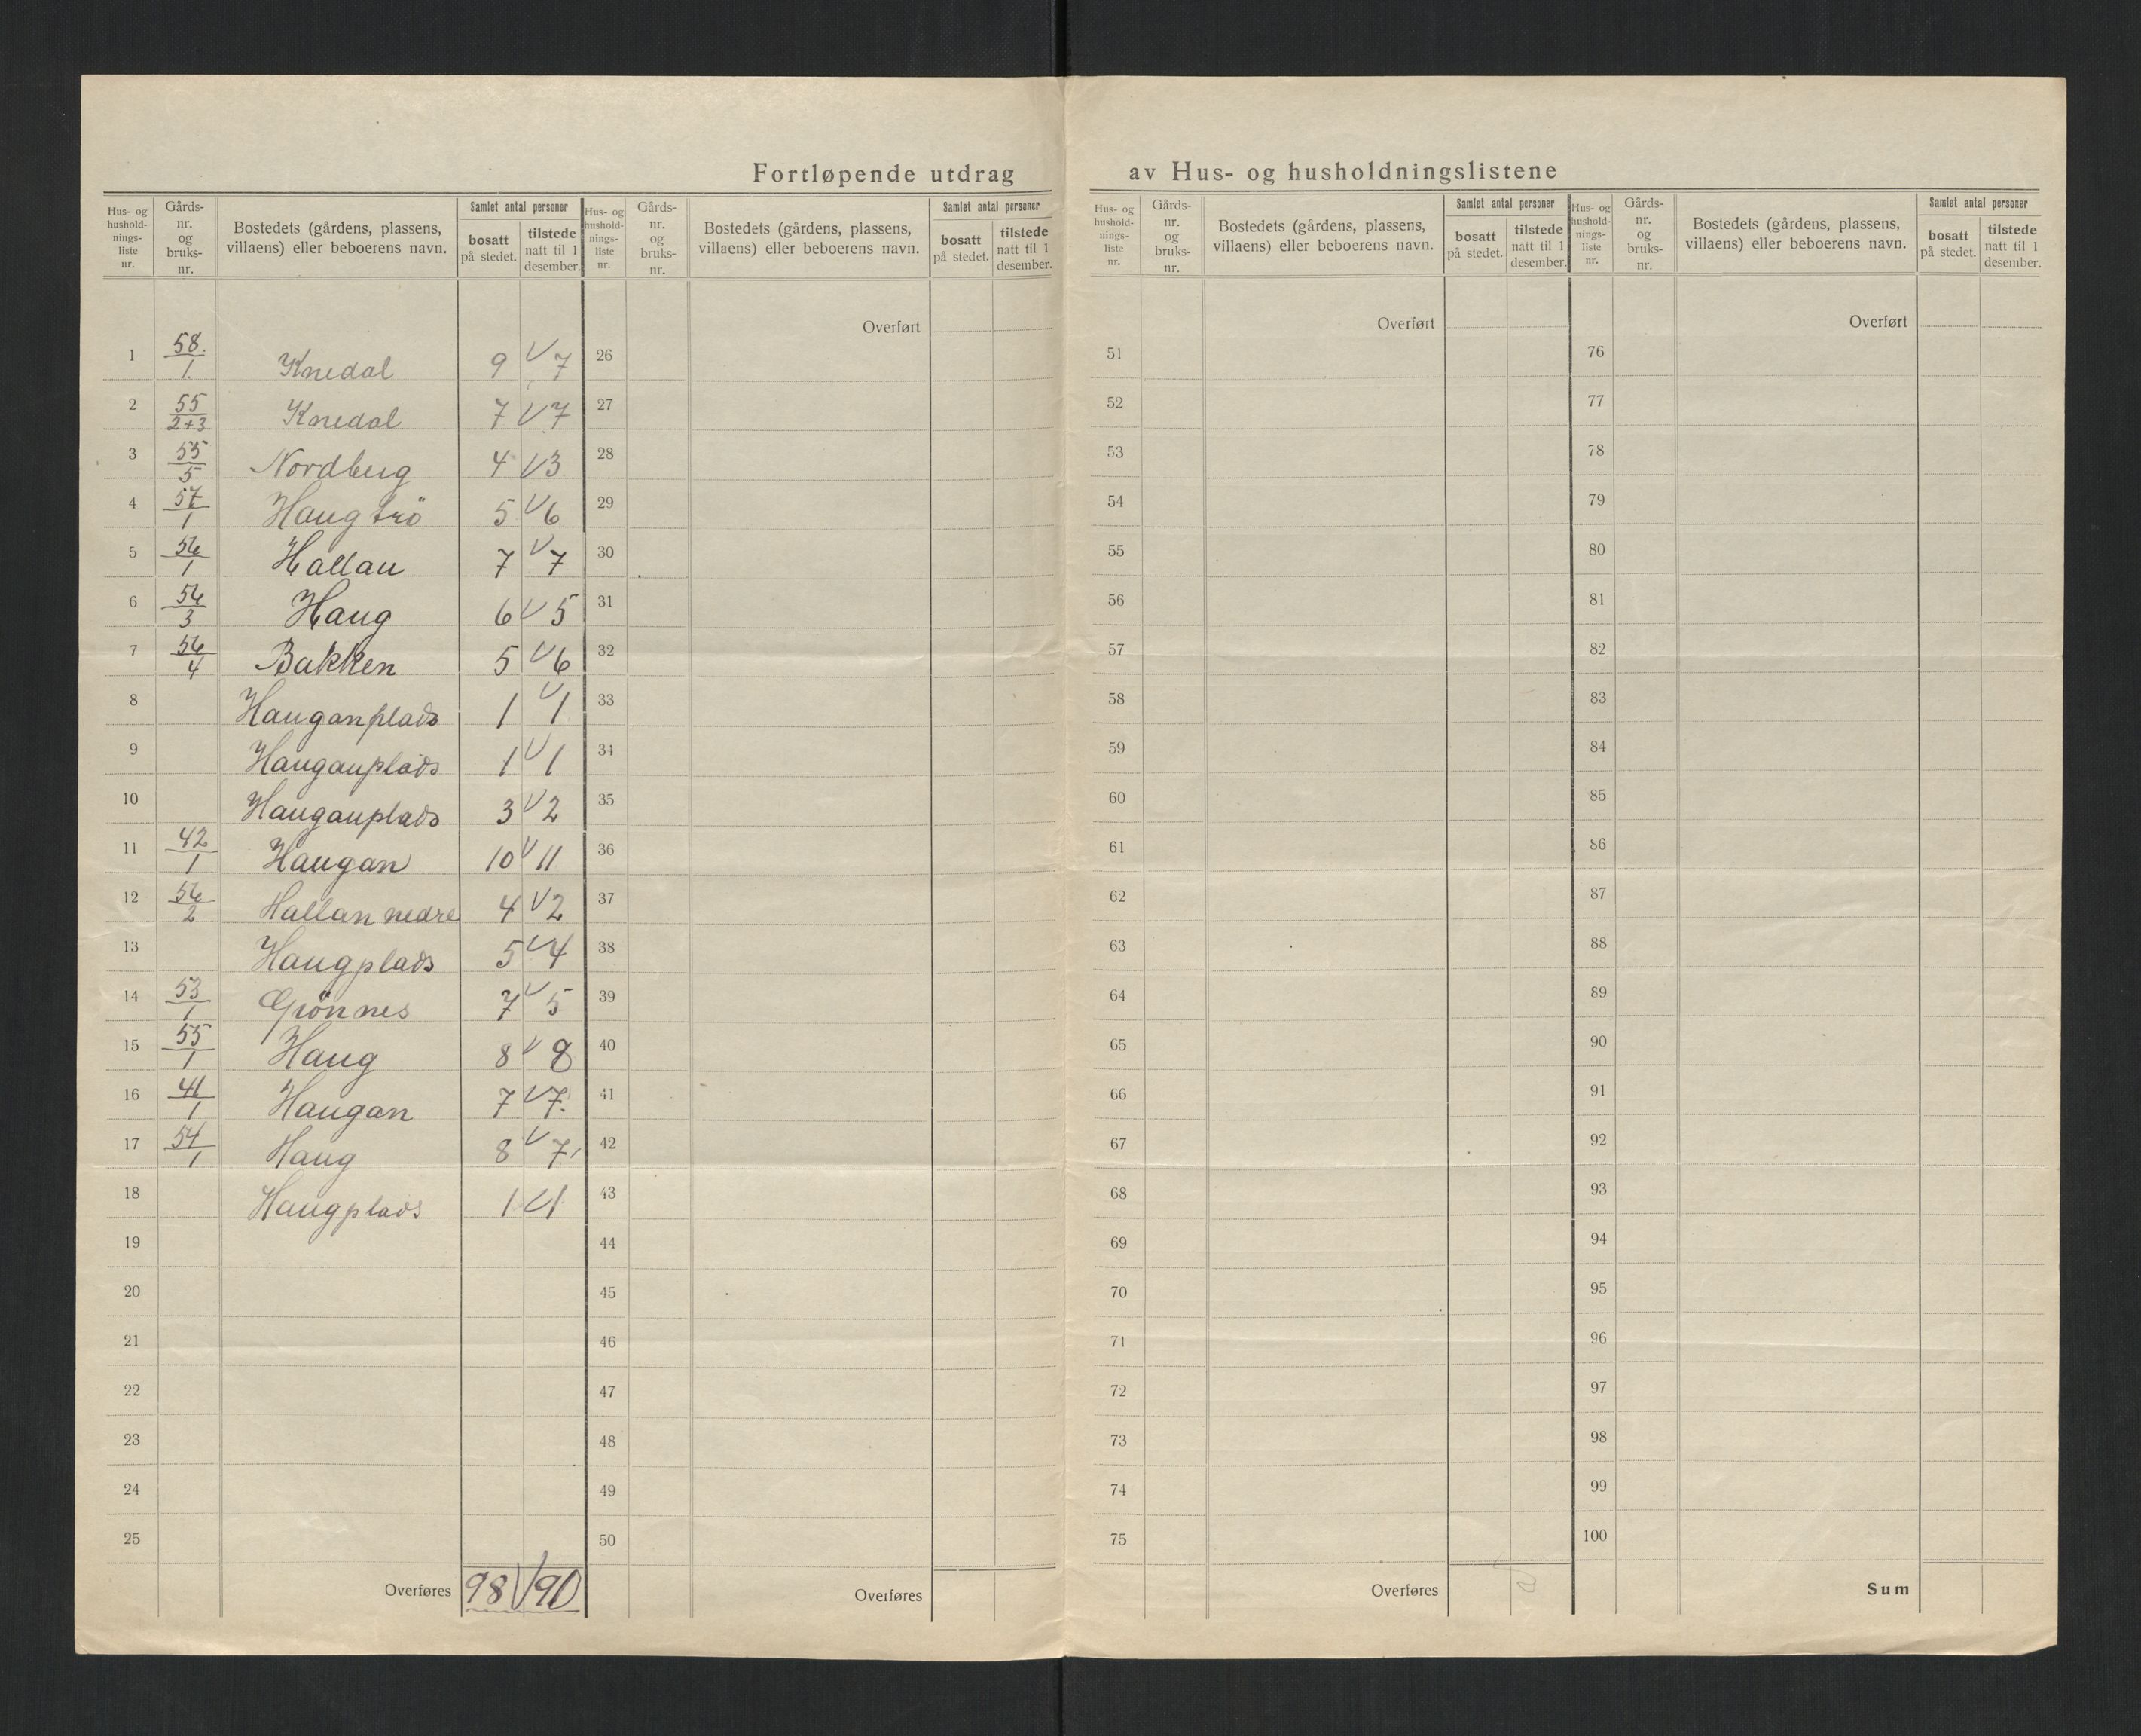 Fortløpende utdrag av Hus- og husholdningslistene
Hus- og hushold-nings-liste nr. Gårds-nr. og bruks-nr. Bostedets (gårdens, plassens, villaens) eller beboerens navn. Samlet antal personer bosatt på stedet. tilstede natt til 1 desember.
Hus- og hushold-nings-liste nr. Gårds-nr. og bruks-nr. Bostedets (gårdens, plassens, villaens) eller beboerens navn. Samlet antal personer bosatt på stedet. tilstede natt til 1 desember.
Hus- og hushold-nings-liste nr. Gårds-nr. og bruks-nr. Bostedets (gårdens, plassens, villaens) eller beboerens navn. Samlet antal personer bosatt på stedet. tilstede natt til 1 desember.
Hus- og hushold-nings-liste nr. Gårds-nr. og bruks-nr. Bostedets (gårdens, plassens, villaens) eller beboerens navn. Samlet antal personer bosatt på stedet. tilstede natt til 1 desember.
Overført Overført Overført
1 58./1. Knedal 9 V 7 26 51 76
2 55/2+3 Knedal 7 V 7 27 52 77
3 55/5 Nordberg 4 V 3 28 53 78
4 57/1 Haugtrö 5 V 6 29 54 79
5 56/1 Hallan 7 V 7 30 55 80
6 56/3 Haug 6 V 5 31 56 81
7 56/4 Bakken 5 V 6 32 57 82
8 Hauganplads 1 V 1 33 58 83
9 Hauganplads 1 V 1 34 59 84
10 Hauganplads 3 V 2 35 60 85
11 42/1 Haugan 10 V 11 36 61 86
12 56/2 Hallan nedre 4 V 2 37 62 87
13 Haugplads 5 V 4 38 63 88
14 53/1 Grönnes 7 V 5 39 64 89
15 55/1 Haug 8 V 8 40 65 90
16 41/1 Haugan 7 V 7. 41 66 91
17 54/1 Haug 8 V 7 42 67 92
18 Haugplads 1 V 1 43 68 93
19 44 69 94
20 45 70 95
21 46 71 96
22 47 72 97
23 48 73 98
24 49 74 99
25 50 75 100
Overføres 98 V 90 Overføres Overføres Sum